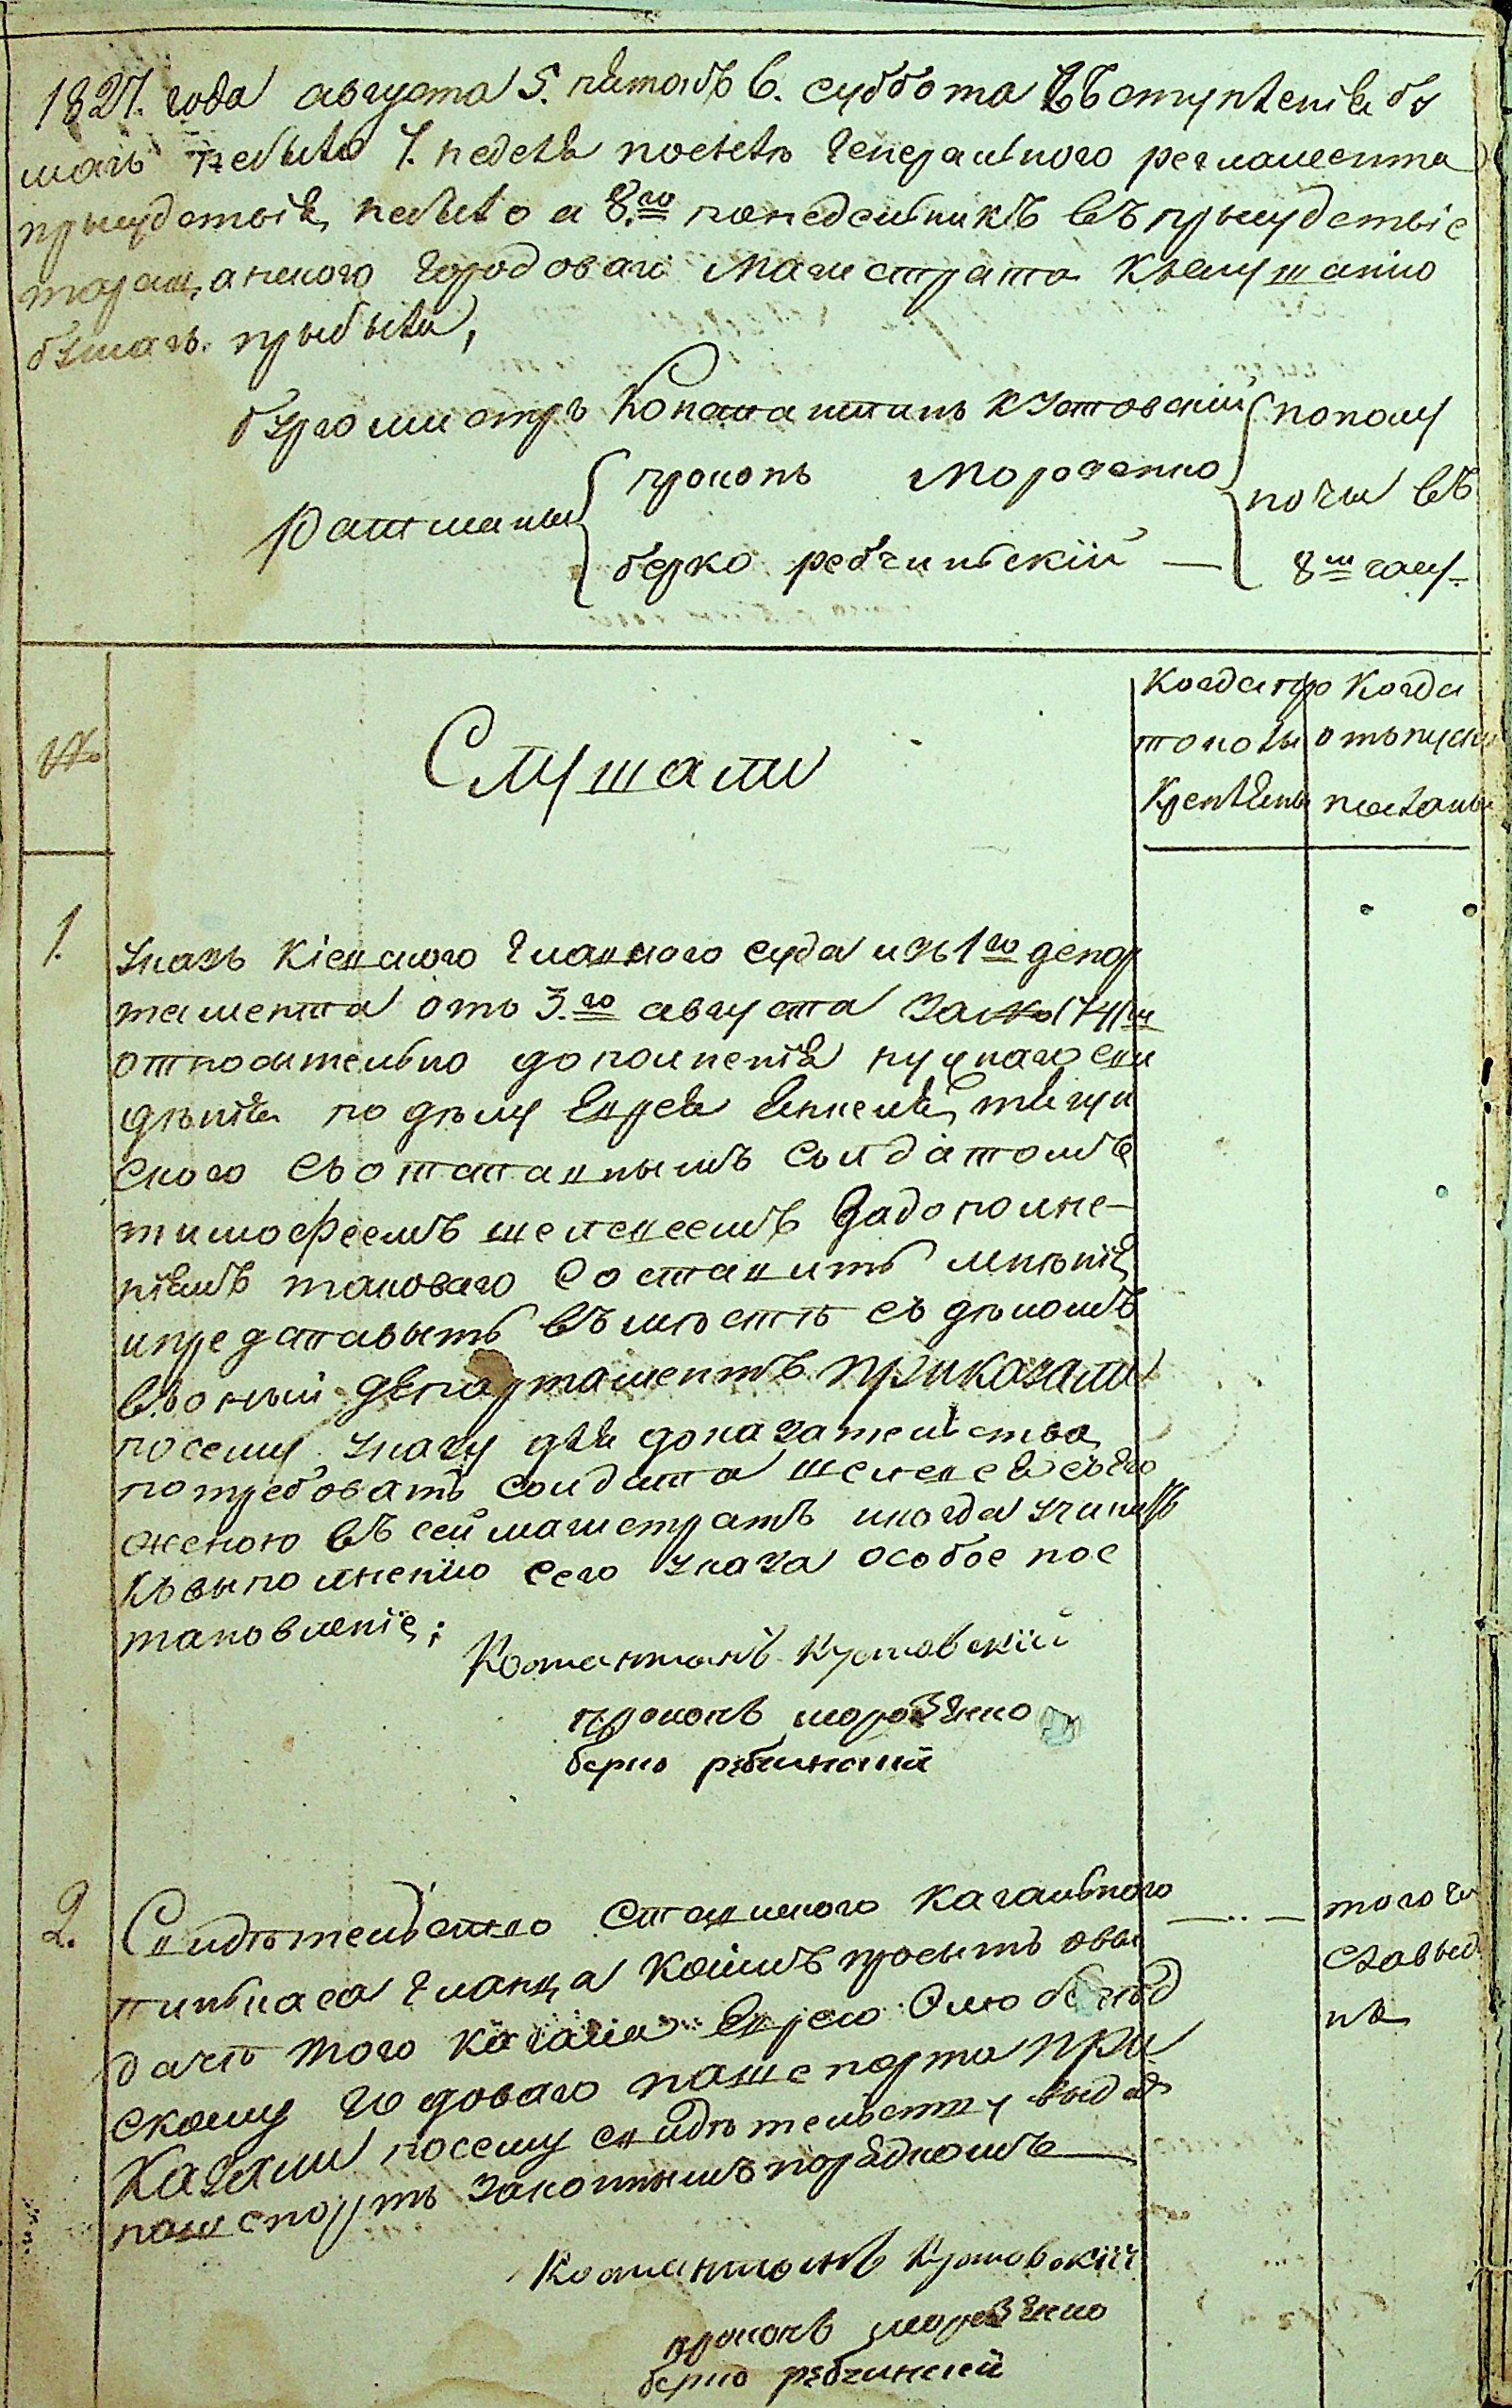 1827. года августа 5. пятокъ 6. суббота въступленія бу
магъ небыло 7. неделя посилѣ генеральнаго регламента
прысудствія небыло а 8.го понедельникъ въ прысудствіе
таращанского городоваго магистрата къслушанію
бумагъ. прыбыли,
бургомистръ Константинъ Кутовскій пополу
ратманы прокопъ Морозенко ночи въ
берко ребчиньскій — 8м часу
№
Слушали
Когда про токолы Крепленъ
Когда отъпуски посланы
1.
Указъ Кіевского главного суда изъ 1го депар
тамента отъ 3.го августа за № 1741м
относительно дополненія нужнаго сви
дѣнія по дѣлу Еврея Янкеля
ского съ отставнымъ солдатомъ
тимофеемъ шелевеемъ задополне-
ніемъ таковаго составить мнѣнія
ипредставыть въмѣстѣ съ дѣломъ
въоный департаментъ приказали
посему указу для доказательства
потребовать солдата шелевея съего
женою въ сей магистратъ икогда учинить
къвыполненію сего указа особое пос
тановленіе;
Константинъ Кутовскій
прокопъ морозенко
берко ребчинский
2.
Свидѣтельство ставиского кагального
пинькаса гланца коимъ просытъ овы
дачѣ того кагала Еврею
скому годоваго пашепорта при
казали посему свидѣтельству выдать
пашепортъ законнымъ порядкомъ —
того чи
сла выд
на
Константинъ Кутовскій
прокопъ морозенко
берко ребчинский